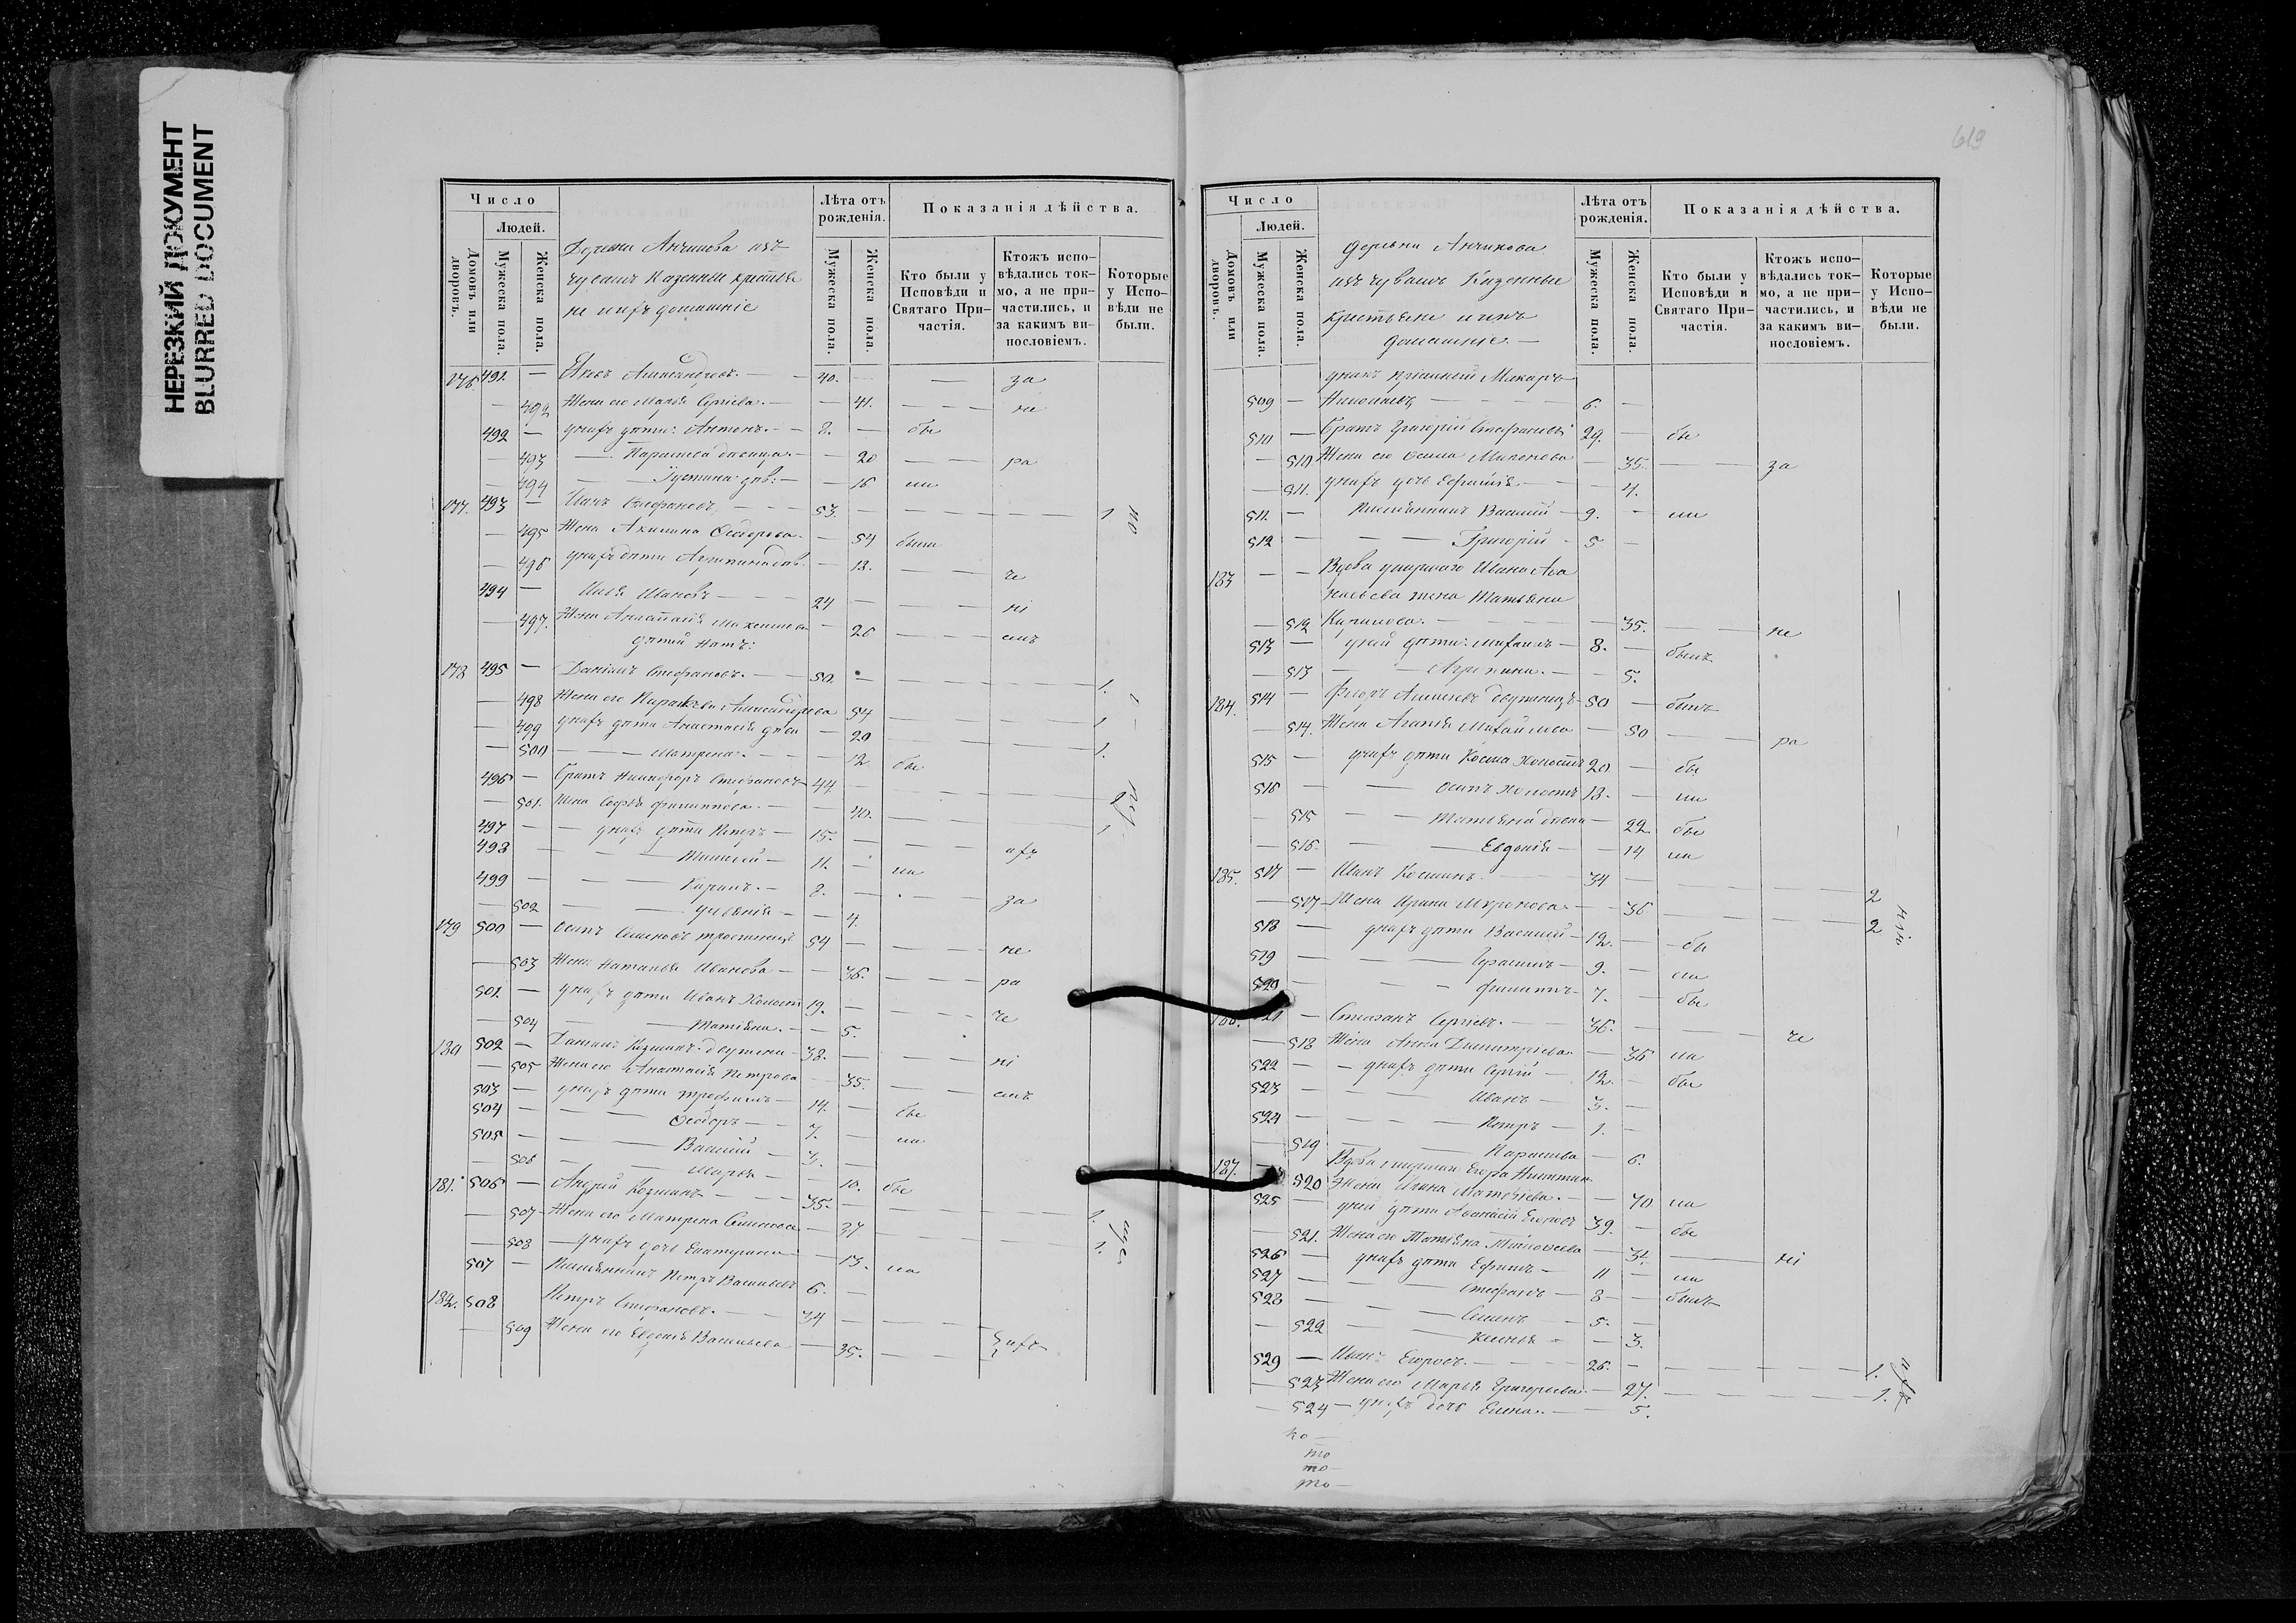 НЕРЕЗКИЙ ДОКУМЕНТ
BLURRED DOCUMENT
Число
Людей.
Домовъ или дворовъ.
Мужеска пола.
Женска пола.
Деревни Анчикова изъ
чувашъ Казенные крестья
не и ихъ домашніе
Лѣта отъ рожденія.
Мужеска пола.
Женска пола.
Показанія дѣйства.
Кто были у Исповѣди и Святаго При-частія.
Ктожъ испо-вѣдались ток-мо, а не при-частились, и за какимъ ви-пословіемъ.
Которые у Испо-вѣди не были.
176 491 — Яковъ Александровъ — 40. — за
— 492 Жена его Марья Сергіева — 41. — не
492 — у нихъ дѣти: Антонъ — 8. — бы
— 493 — Параскева дѣвица — 20 — ра
— 494 — Іустина дѣв: — 16 ли
177. 493 — Иванъ Стефановъ — 53. — 1
— 495 Жена Акилина Ѳеодорова — 54 были
— 496 у нихъ дѣти Агрипина дѣв. — 12. — че
494 — Илья Ивановъ — 24 — ні
— 497. Жена Анастасія Максимова — 26 — емъ
дѣтей нѣтъ:
178 495 — Даніилъ Стефановъ — 50. — 1.
— 498 Жена его Параскева Александрова 54 — 1
— 499 у нихъ дѣти Анастасія дѣви — 20 — 1.
— 500 — Матрена — 12 бы
496 — Братъ Никифоръ Стефановъ 44 —
— 501. Жена Софья Филиппова — 40. — 1
497 — у нихъ дѣти Петръ — 15. —
498 — 11. — ли
499 — Кирилъ — 8. — за
— 502 — — 4.
179 500 — Осипъ Семеновъ 54 — не
— 503 Жена Наталья Иванова — 36. — ра
501. — у нихъ дѣти Иванъ Холостъ 19. — че
— 504 — Татіяна — 5.
180 502 — Даніилъ Козминъ 38. — ні
— 505 Жена его Анастасія Петрова — 35. — емъ
503 — у нихъ дѣти Трофимъ — 14. — бы
504 — Ѳеодоръ — 7. — ли
505 — Василій — 3.
— 506 — Марья — 10. бы
181. 506 — Андрей Козминъ — 35. — 1.
— 507 Жена его Матрена Семенова — 37 — 1.
— 508 — у нихъ дочь Екатерина — 13. ли
507 — Племянникъ Петръ Васильевъ 6. —
182. 508 Петръ Стефановъ — 34 —
— 509 Жена его Евдокія Васильева — 35. —
619
Число
Людей.
Домовъ или дворовъ.
Мужеска пола.
Женска пола.
Деревни Анчикова
изъ чувашъ Казенные
Крестьяне и ихъ
домашніе —
Лѣта отъ рожденія.
Мужеска пола.
Женска пола.
Показанія дѣйства.
Кто были у Исповѣди и Святаго При-частія.
Ктожъ испо-вѣдались ток-мо, а не при-частились, и за какимъ ви-пословіемъ.
Которые у Испо-вѣди не были.
у нихъ Макаръ
509 — Николаевъ — 6. —
510 — Братъ Григорій Стефановъ 29. — бы
— 510 Жена его Миронова — 35. — за
— 511. у нихъ дочь — 4.
511. — Племянникъ Василій — 9. — ли
512 — Григорій — 5 —
183 — — Вдова умершаго Ивана Аѳа
насьева жена Татьяна
— 512 Кирилова — 35. — не
513 — у ней дѣти: Михаилъ — 8. — былъ
— 513 — Агрипина — 5.
184. 514 — Ѳедоръ Алексѣевъ 50 — былъ
— 514. Жена Агафія Михайлова — 50 — ра
515 — у нихъ дѣти Косма Холостъ 20 — бы
516 — Осипъ Холостъ 18. — ли
— 515 — Татьяна дѣвка — 22. бы
— 516. — Евдокія — 14 ли
185. 517 — Иванъ Косминъ — 34 — 2
— 517 — Жена Ирина Миронова — 36 — 2
518 — у нихъ дѣти Василій — 12. — бы
519 — Герасимъ — 9. — ли
520 — Филиппъ — 7. — бы
186. 521 — Степанъ Сергіевъ — 36. — че
— 518 Жена Анна Димитріева — 36 ли
522 — у нихъ дѣти Сергій — 12. — бы
523 — Иванъ — 3. —
524 — Петръ — 1. —
— 519 — Параскева — 6.
187. — Вдова умершаго Егора Никитина
520 Жена Матвѣева — 70 ли
525 — у ней дѣти Аѳанасій Егоровъ 39. — бы
— 521. Жена его Татіяна Тимоѳеева — 34. — ні
526 — у нихъ дѣти Ефимъ — 11 — ли
527 — Стефанъ — 8 — былъ
528 — Семенъ — 5. —
— 522 — Ксенья — 3.
529 — Иванъ Егоровъ — 26. — 1.
— 523 Жена его Марья Григорьева — 27. — 1.
— 524 — у нихъ дочь Елена — 5.
ко —
то
то —
то —